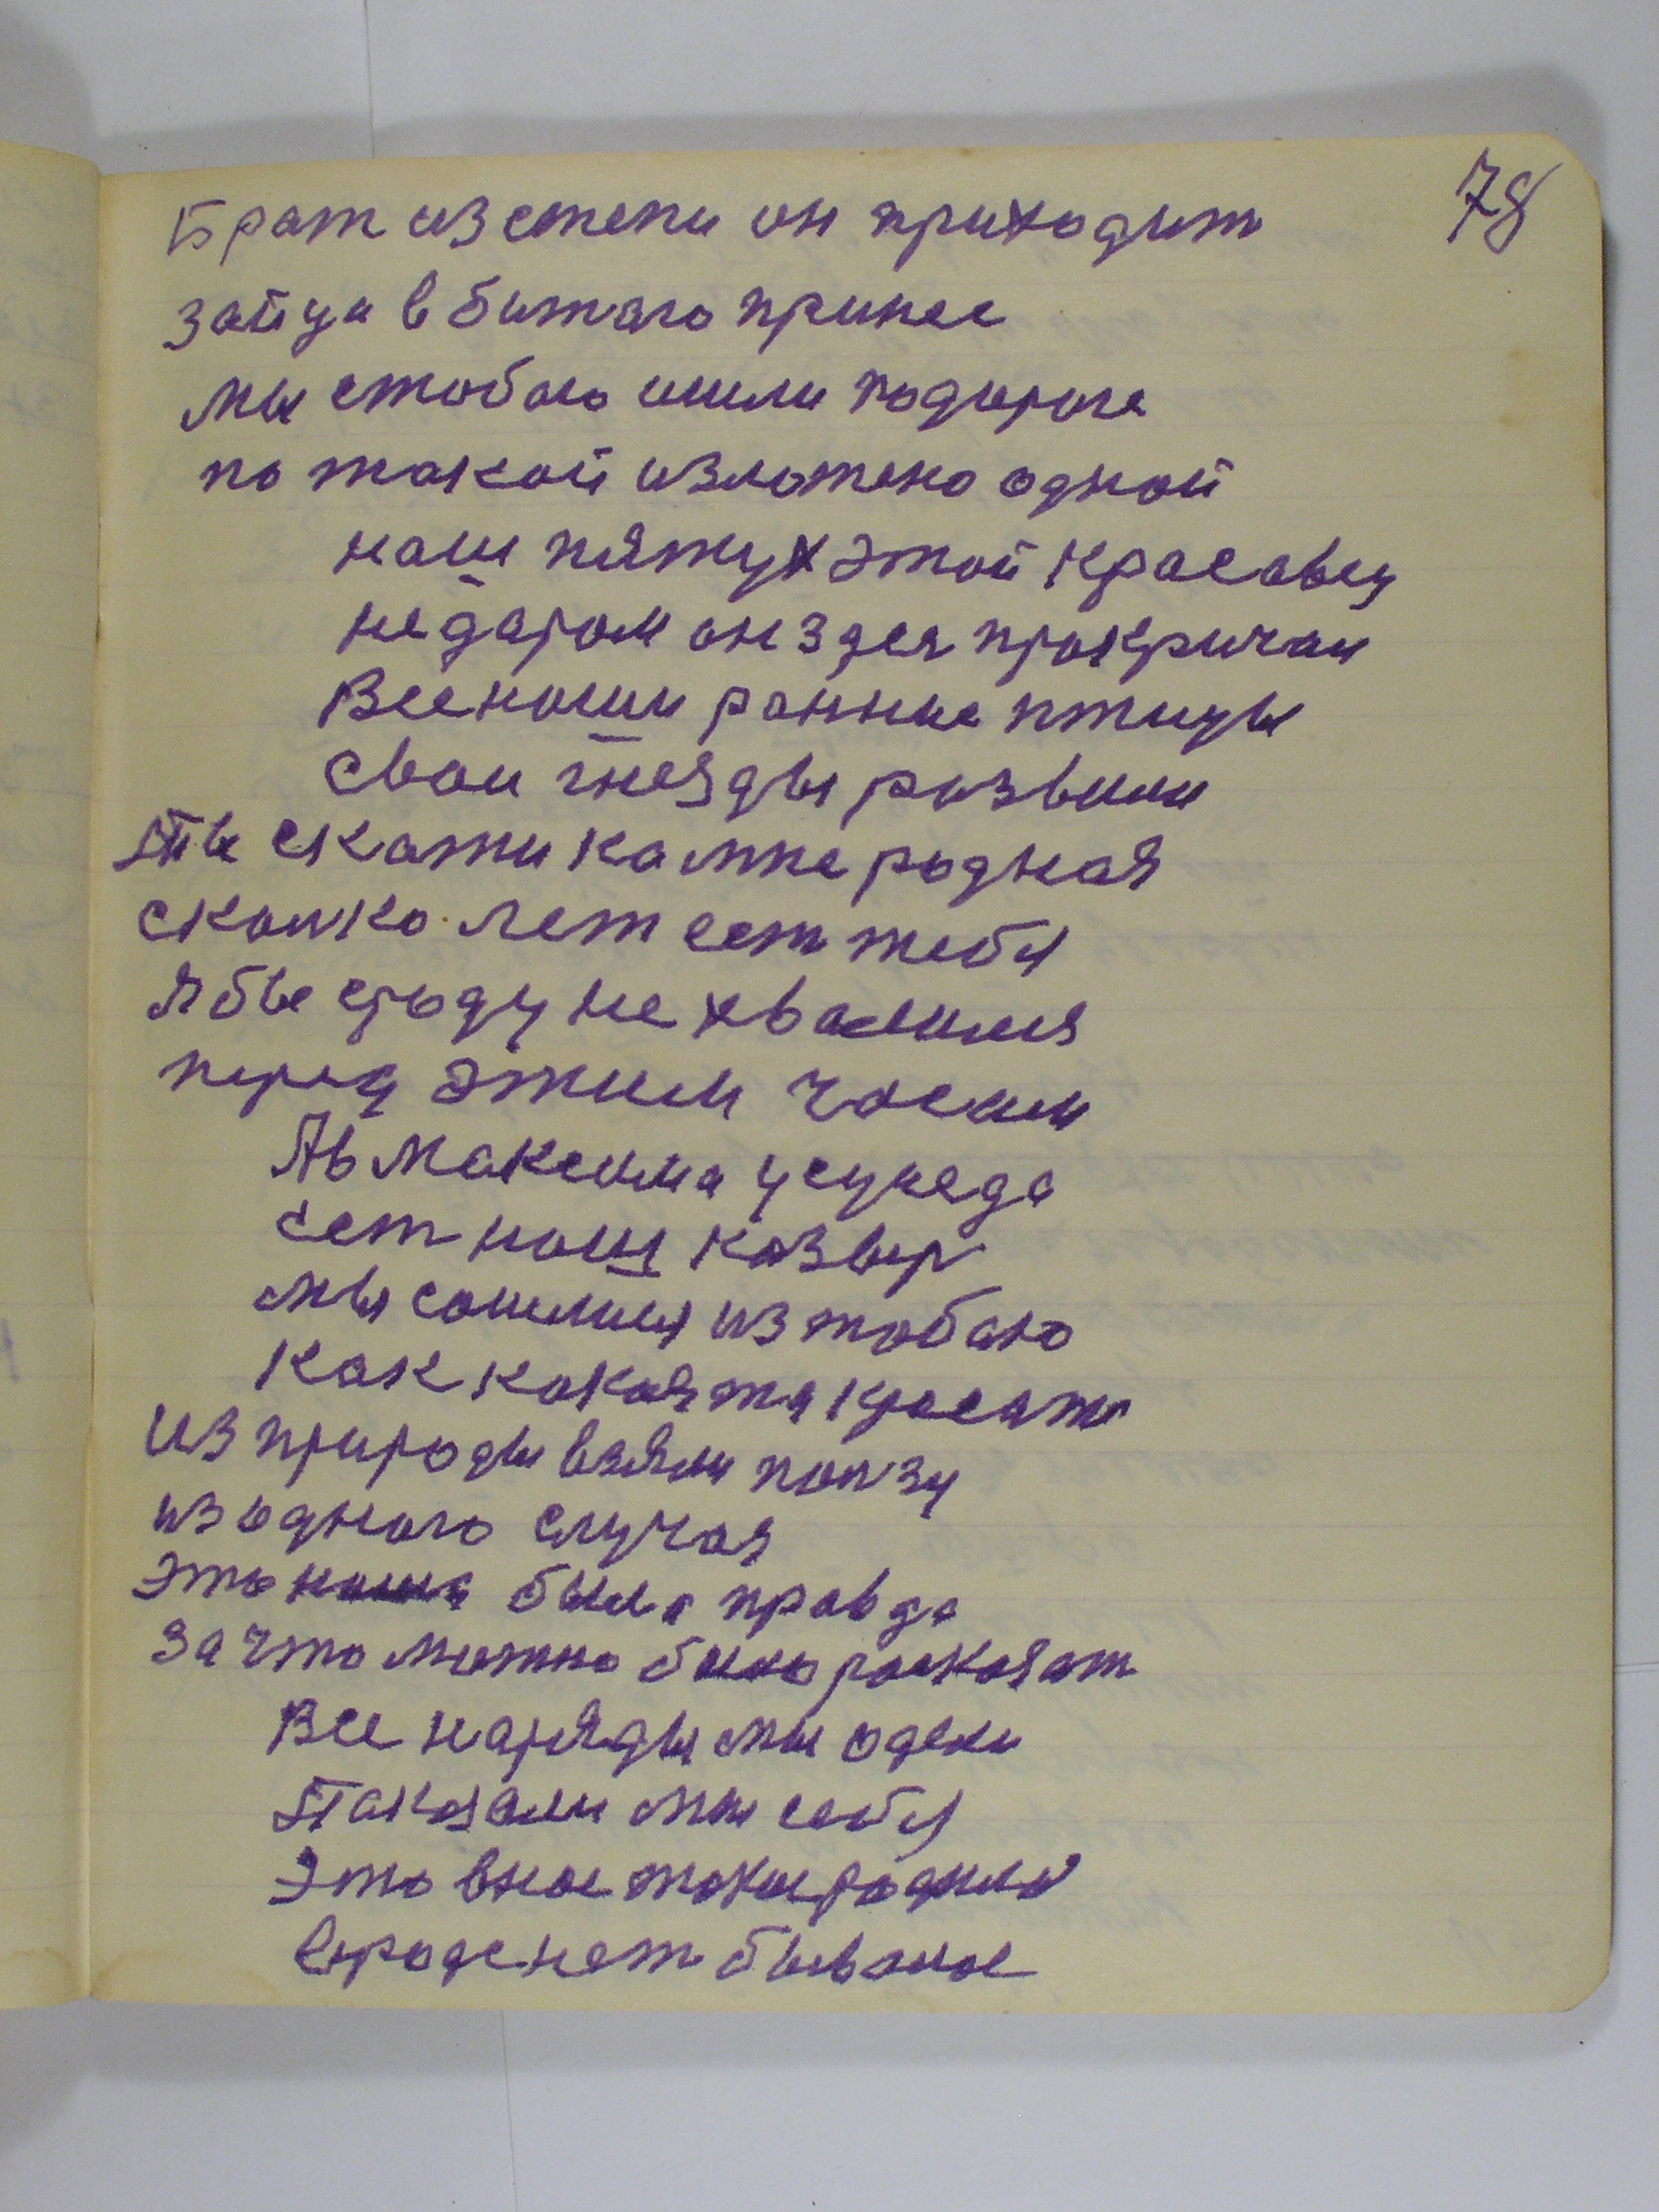 78
Брат из степи он приходит
зайца в битого принес
мы стобою ишли подороге
по такой изложено одной
наш пятух этой красавец
недаром он здея прокричал
Все наши ранние птицы
свои гнезды развили
Ты скажи ка мне родная
сколко лет ест тебя
Я бы сроду не хвалился
перед этим часам
Ав Максима усуседа
ест наш козыр
мы сошлися из тобаю
как какоята красата
Из природы взяли ползу
изодного случая
Это наша была правда
За что можно было расказат
Все наряды мы одели
Паказали мы себя
Это внас
вроде нет бывалое